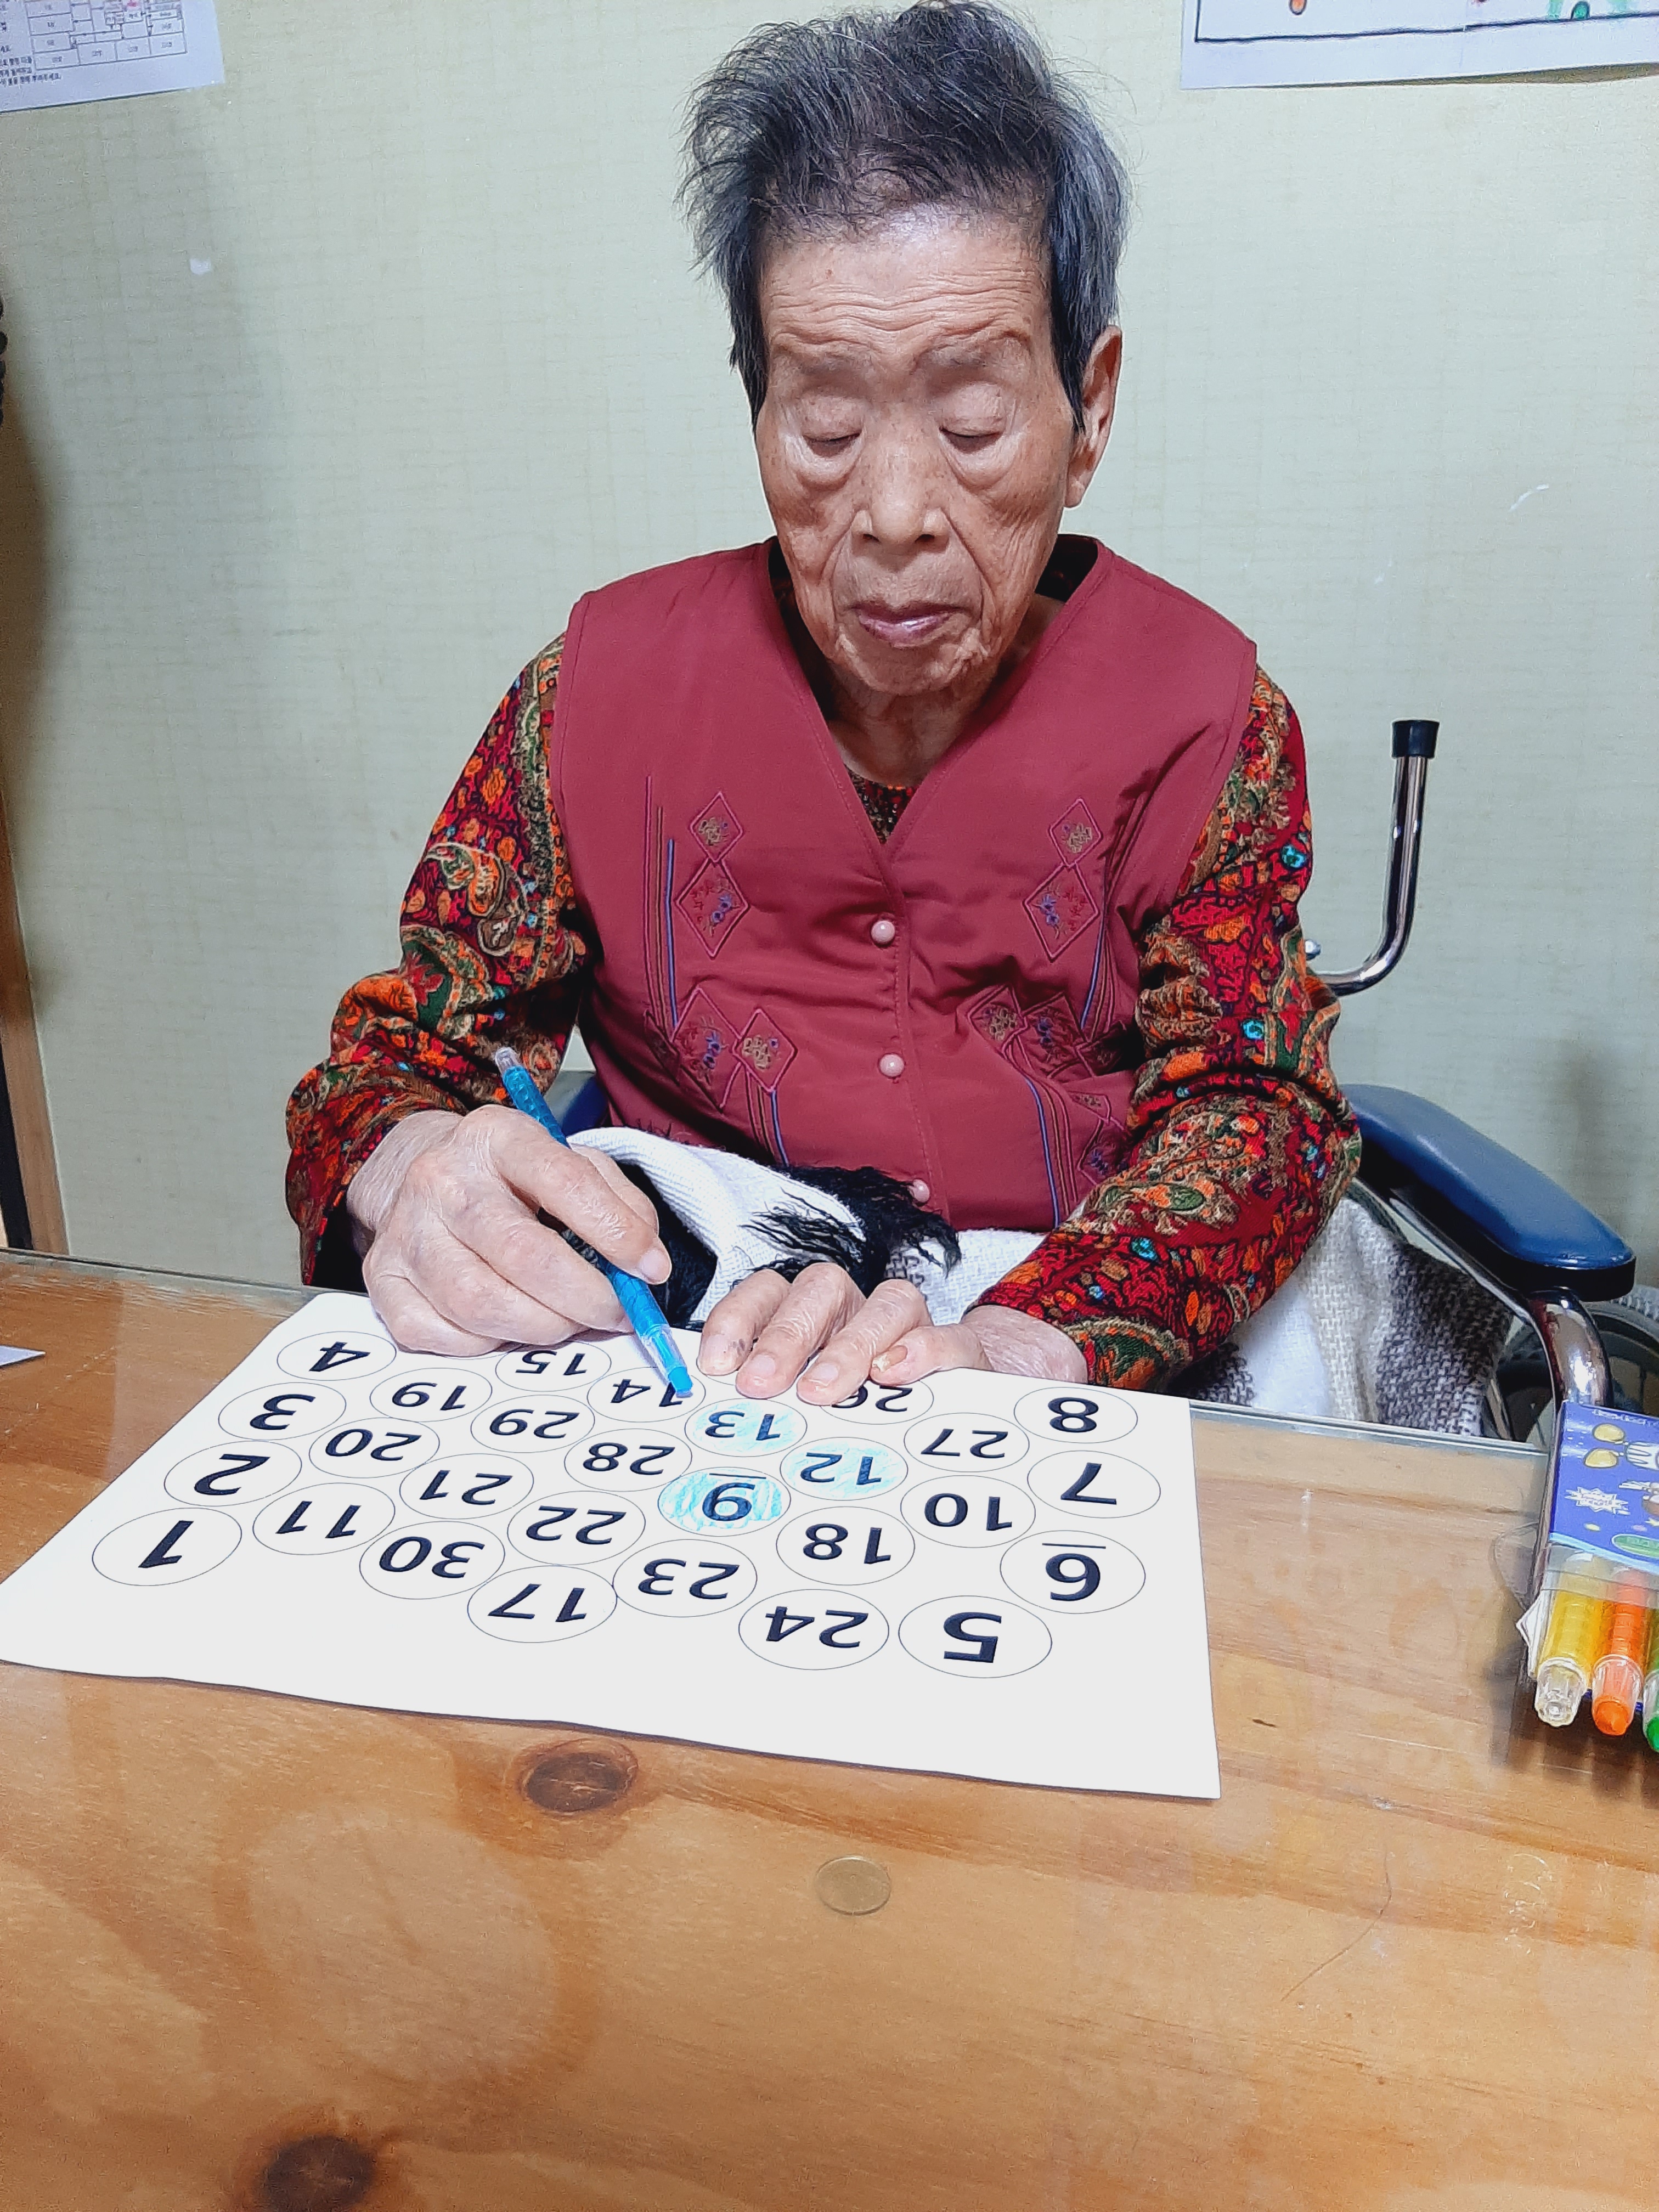 5 24 17 30 1
6 18 23 22 11 2
7 10 9 21 20 3
27 12 28 29 19 4
8 26 13 14 15